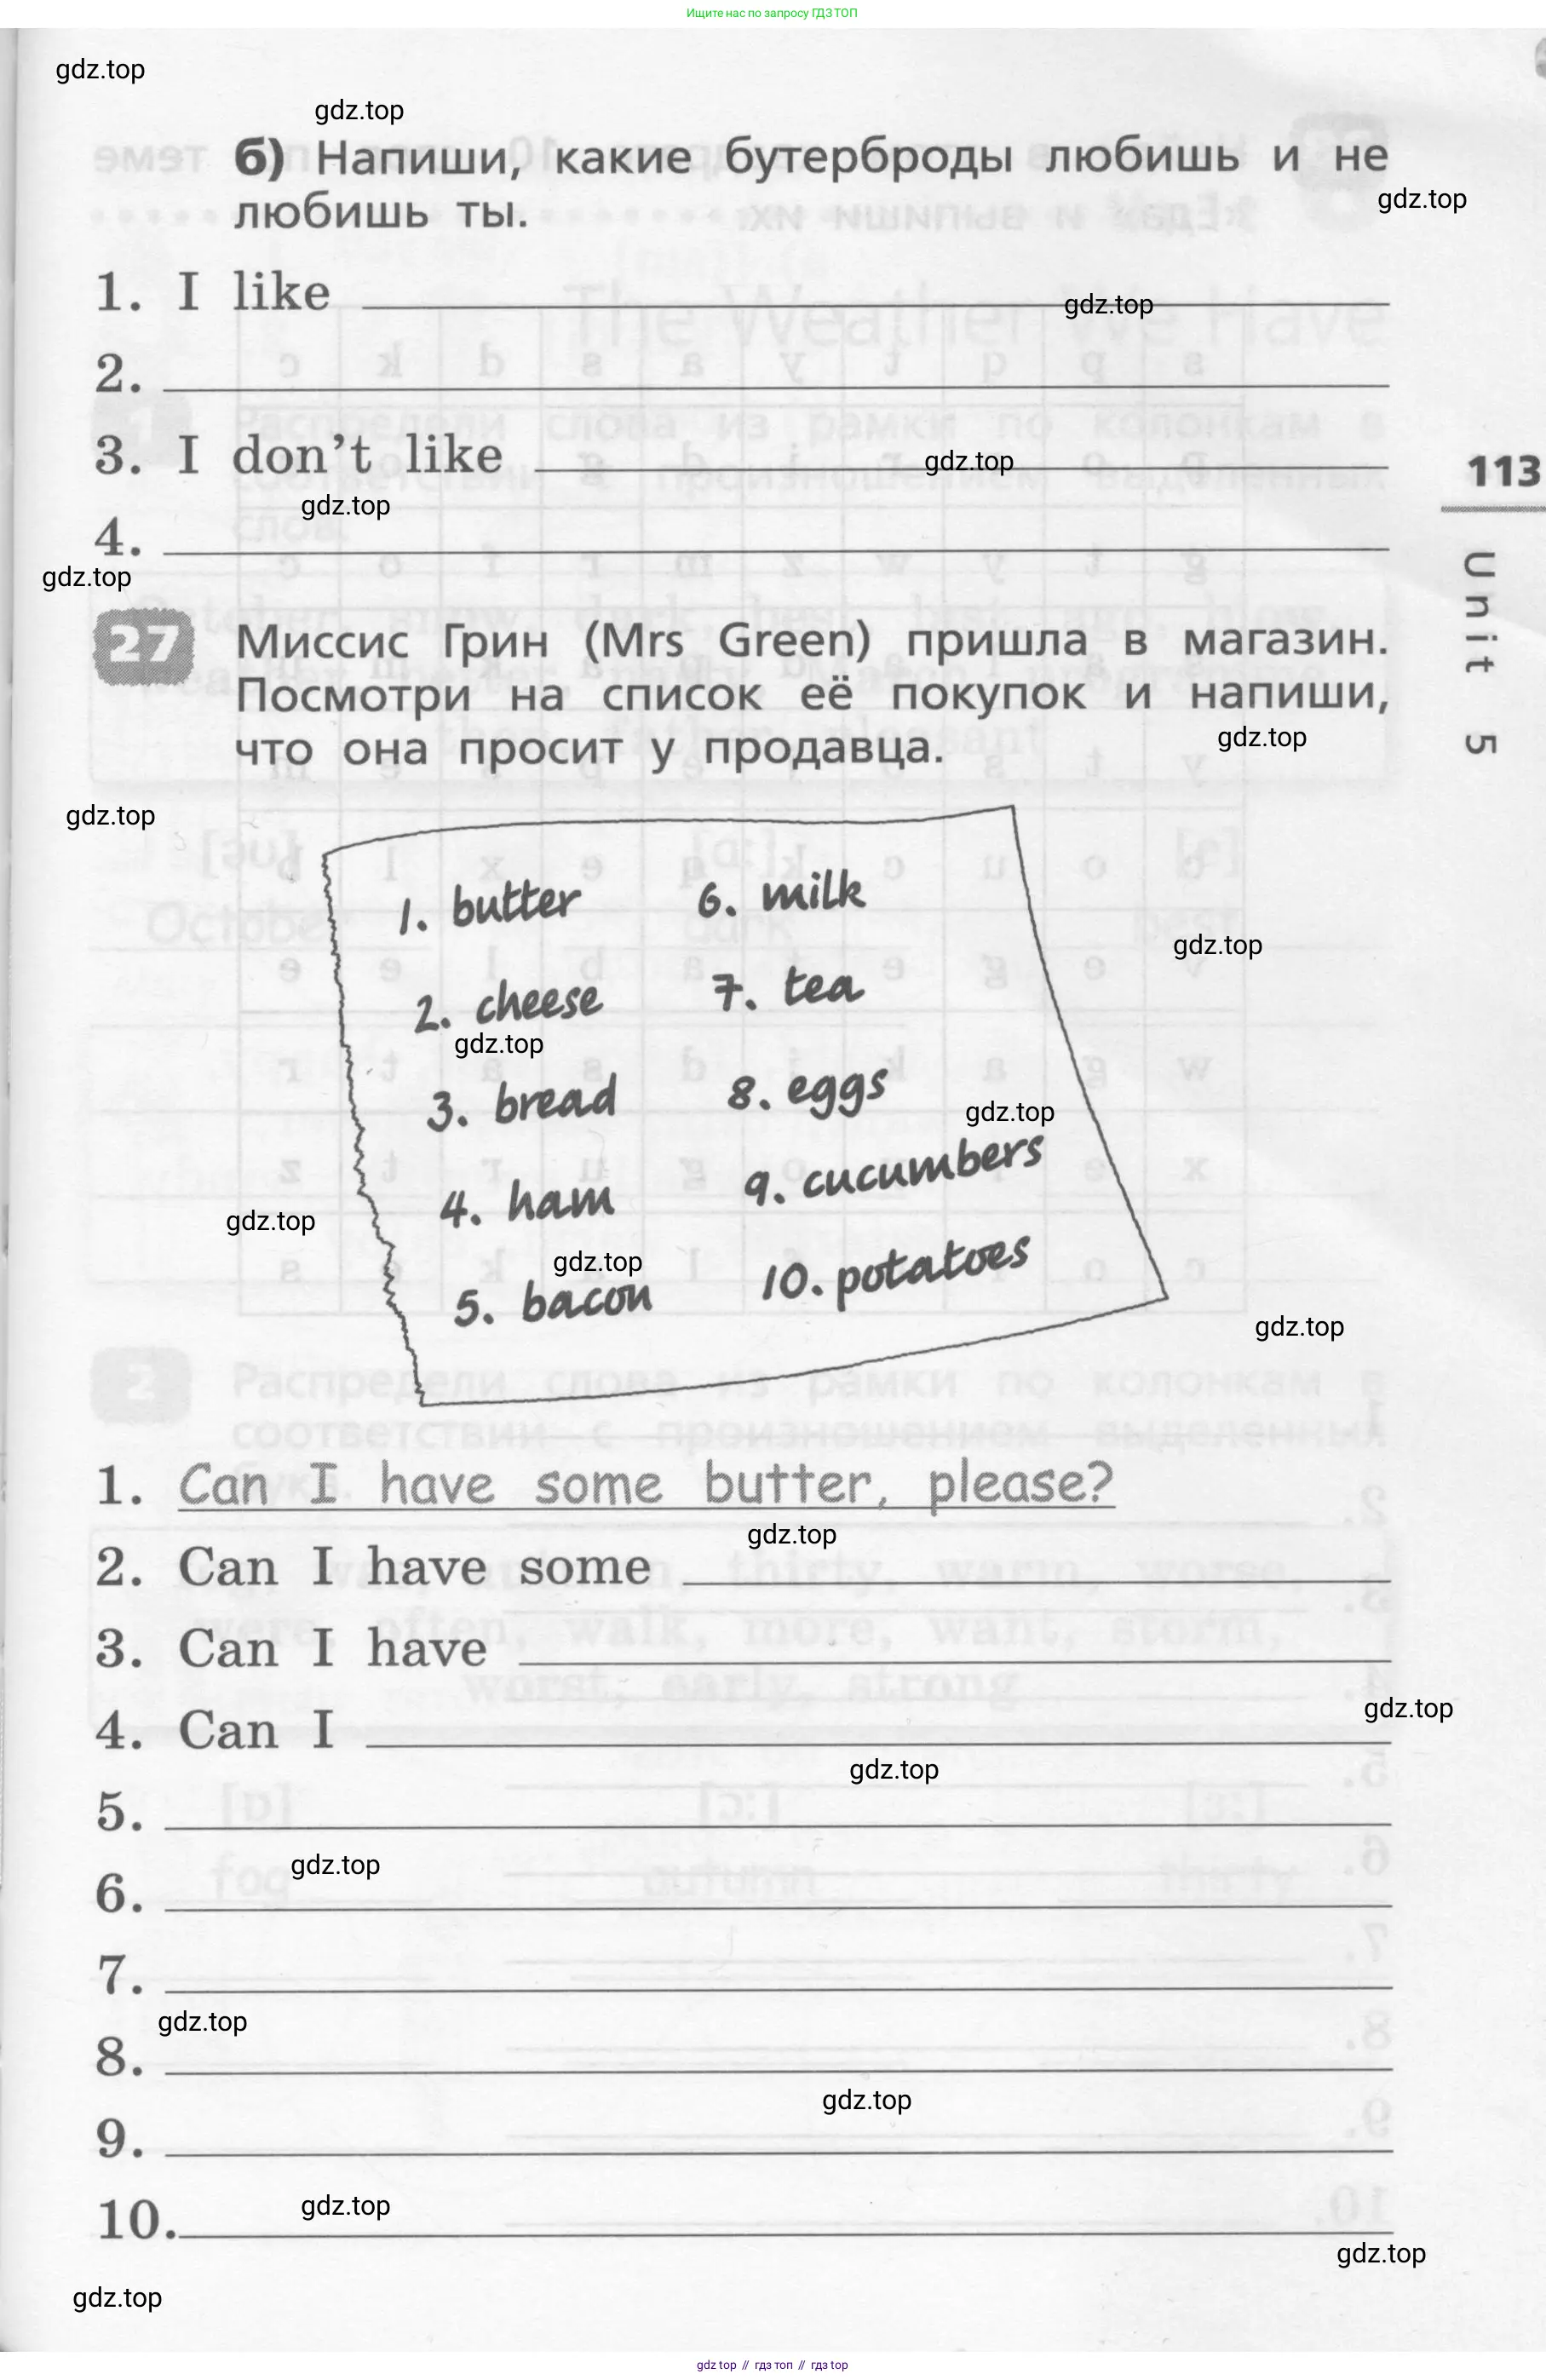 Ищите нас по запросу ГДЗ ТОП
gdz.top
gdz.top
б) Напиши, какие бутерброды любишь и не
gdz.top
любишь ты.
1. I like
gdz.top
2.
3. I don't like
gdz.top
113
gdz.top
4.
gdz.top
Unit 5
27 Миссис Грин (Mrs Green) пришла в магазин.
Посмотри на список её покупок и напиши,
что она просит у продавца.
gdz.top
gdz.top
1. butter 6. milk
gdz.top
2. cheese 7. tea
gdz.top
3. bread 8. eggs
gdz.top
4. ham 9. cucumbers
gdz.top
gdz.top
5. bacon 10. potatoes
gdz.top
1. Can I have some butter, please?
gdz.top
2. Can I have some
3. Can I have
gdz.top
4. Can I
gdz.top
5.
gdz.top
6.
7.
gdz.top
8.
gdz.top
9.
gdz.top
10.
gdz.top
gdz.top
gdz top // гдз топ // гдз top